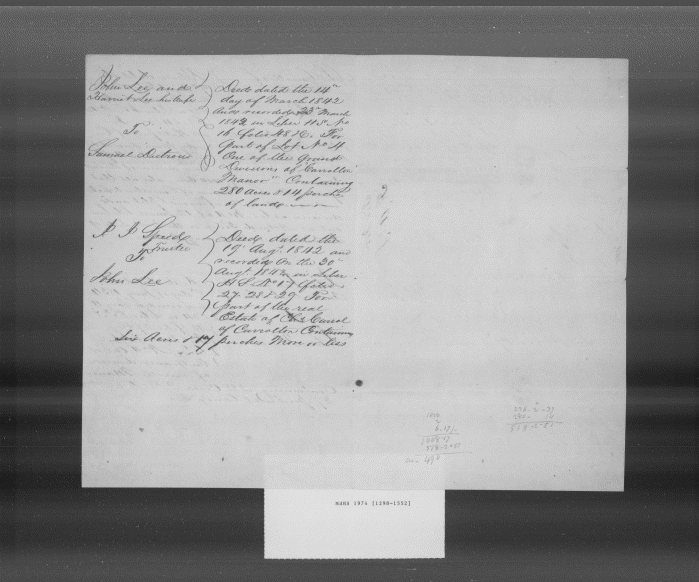 John Lee and
Harriet Lee his wife
To
Samuel
Deed dated the 14th
day of March 1842
And recorded 23d March
1842 in Liber HS. No
16 folio 48 &c. For
part of Lot No 4
One of the Grand
Divisions of "Carrollton
Manor" Containing
280 Acres & 14 perches
of land
Speed
Trustee
To
John Lee
Deed dated the
19th Augt. 1842 and
recorded on the 30th
Augt. 1842 in Liber
H S. No 17 folio
27. 28 & 29 For
part of the real
Estate of Chs Carroll
of Carrollton Containing
Six Acres & 17 perches More or less
MdHR 1974 [1298-1552]